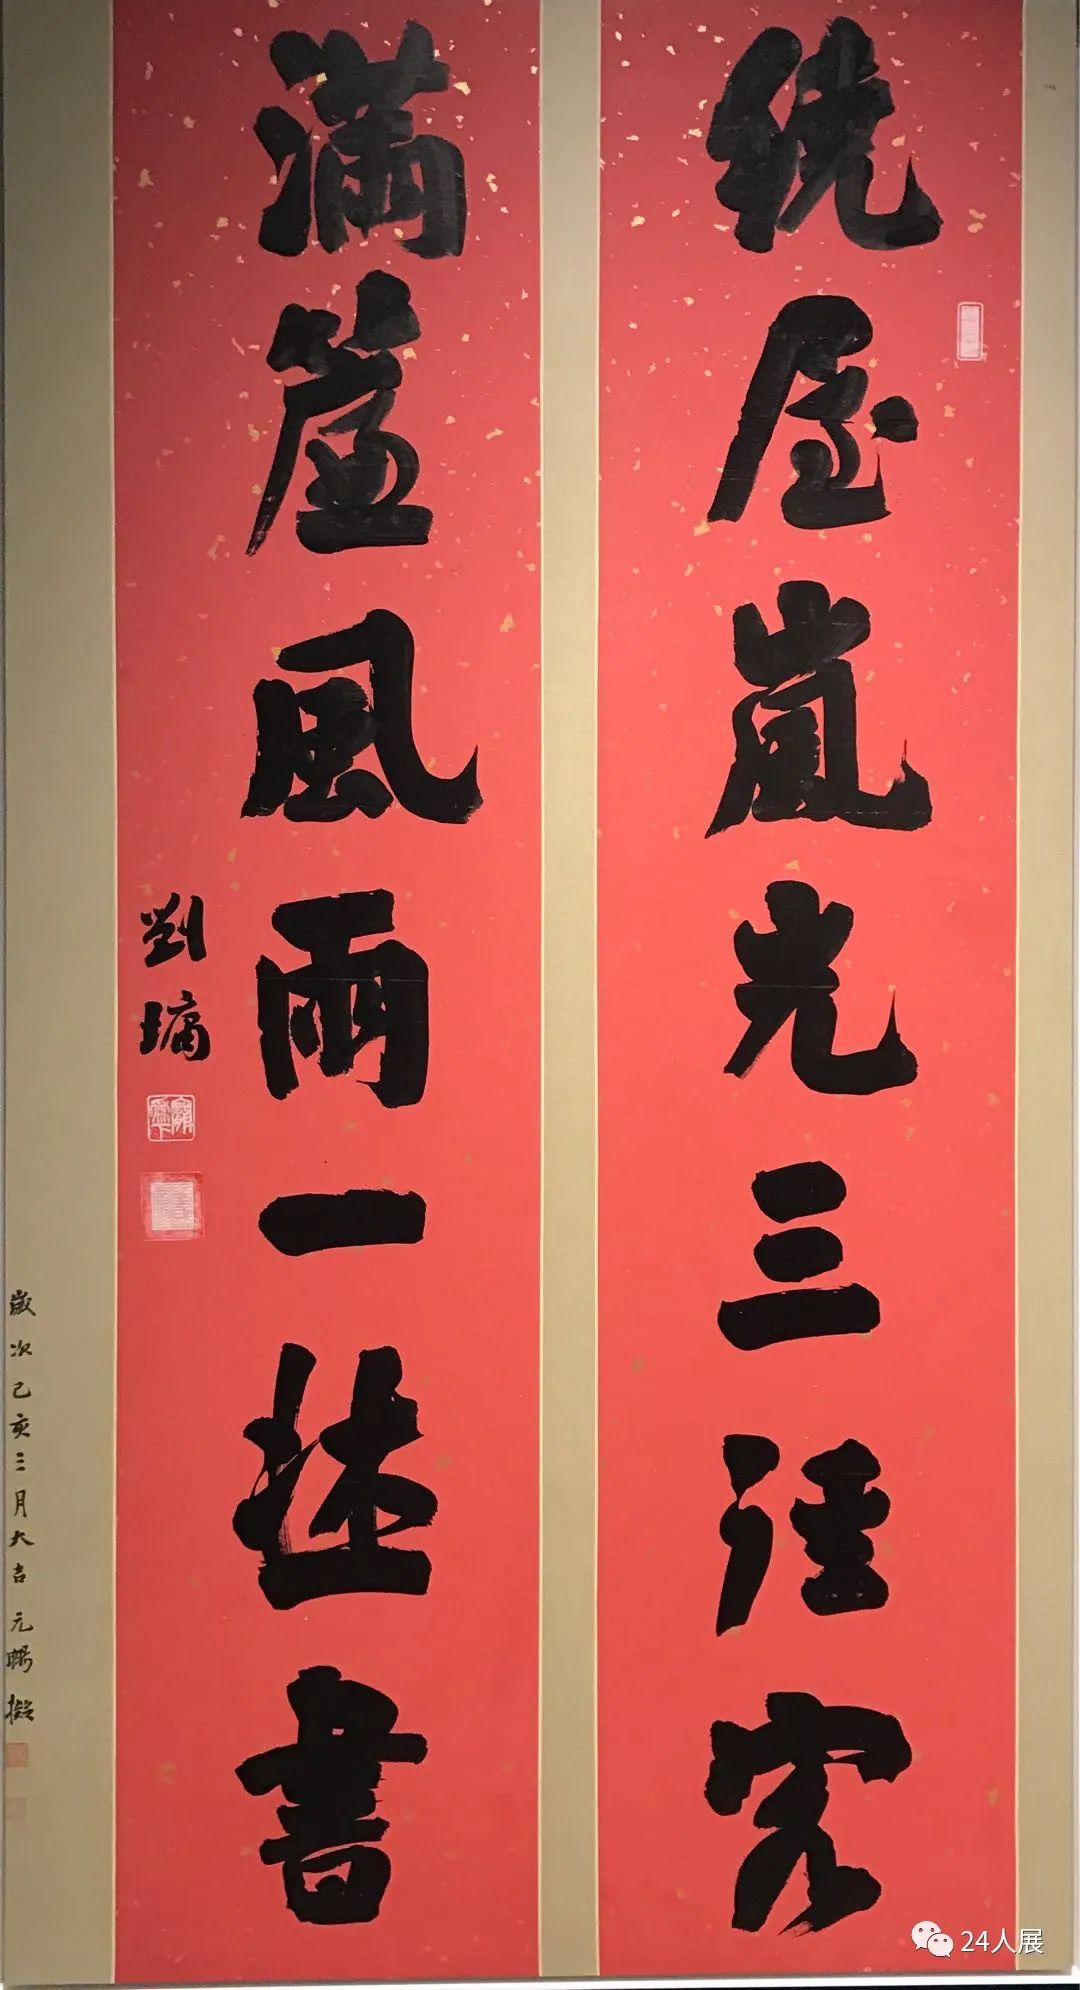 繞屋嵐光三徑客
滿風雨一書
劉墉
歲次己亥三月大吉元擬
24人展